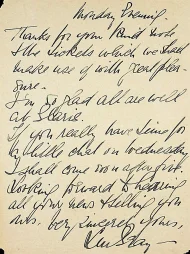 Monday Evening.
Thanks for your kind note
& the tickets which we shall
make use of with great plea-
sure.
I'm so glad all are well
at
If you really have time for
a little chat on Wednesday
I shall come
Looking forward to hearing
all your news & telling you
ours. Very sincerely yours,